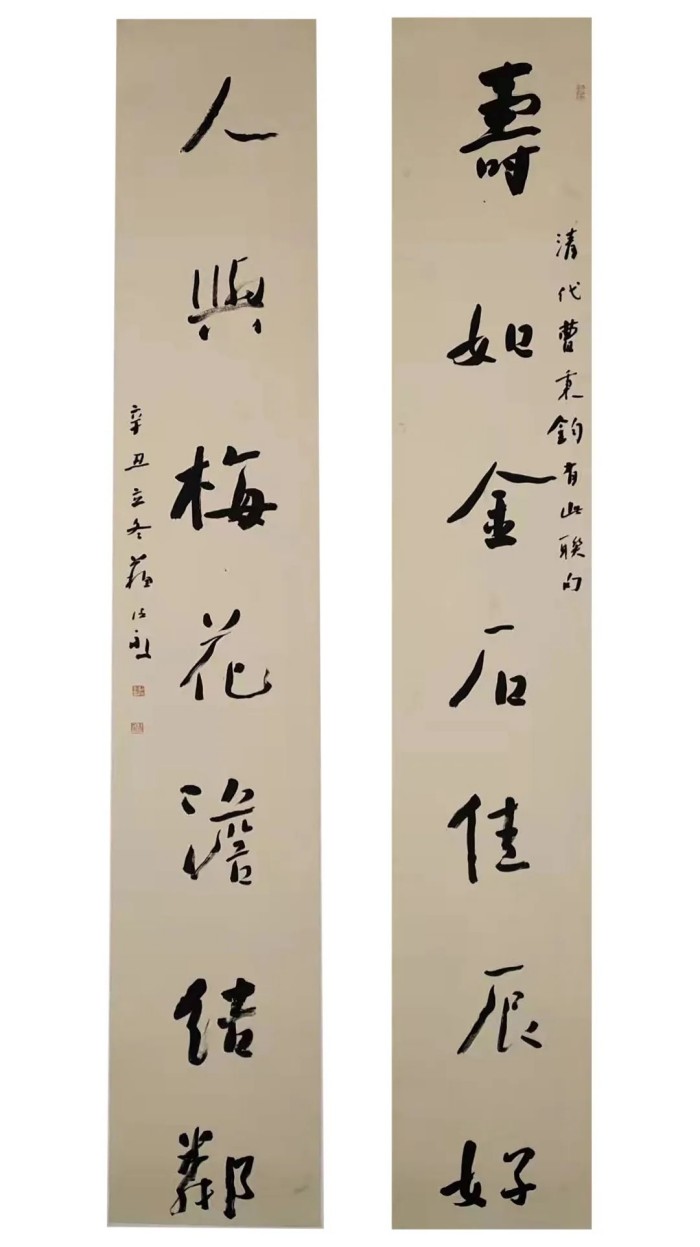 壽如金石佳辰好
清代曹秉鈞有此聯句
人與梅花澹結鄰
辛丑立冬蘇